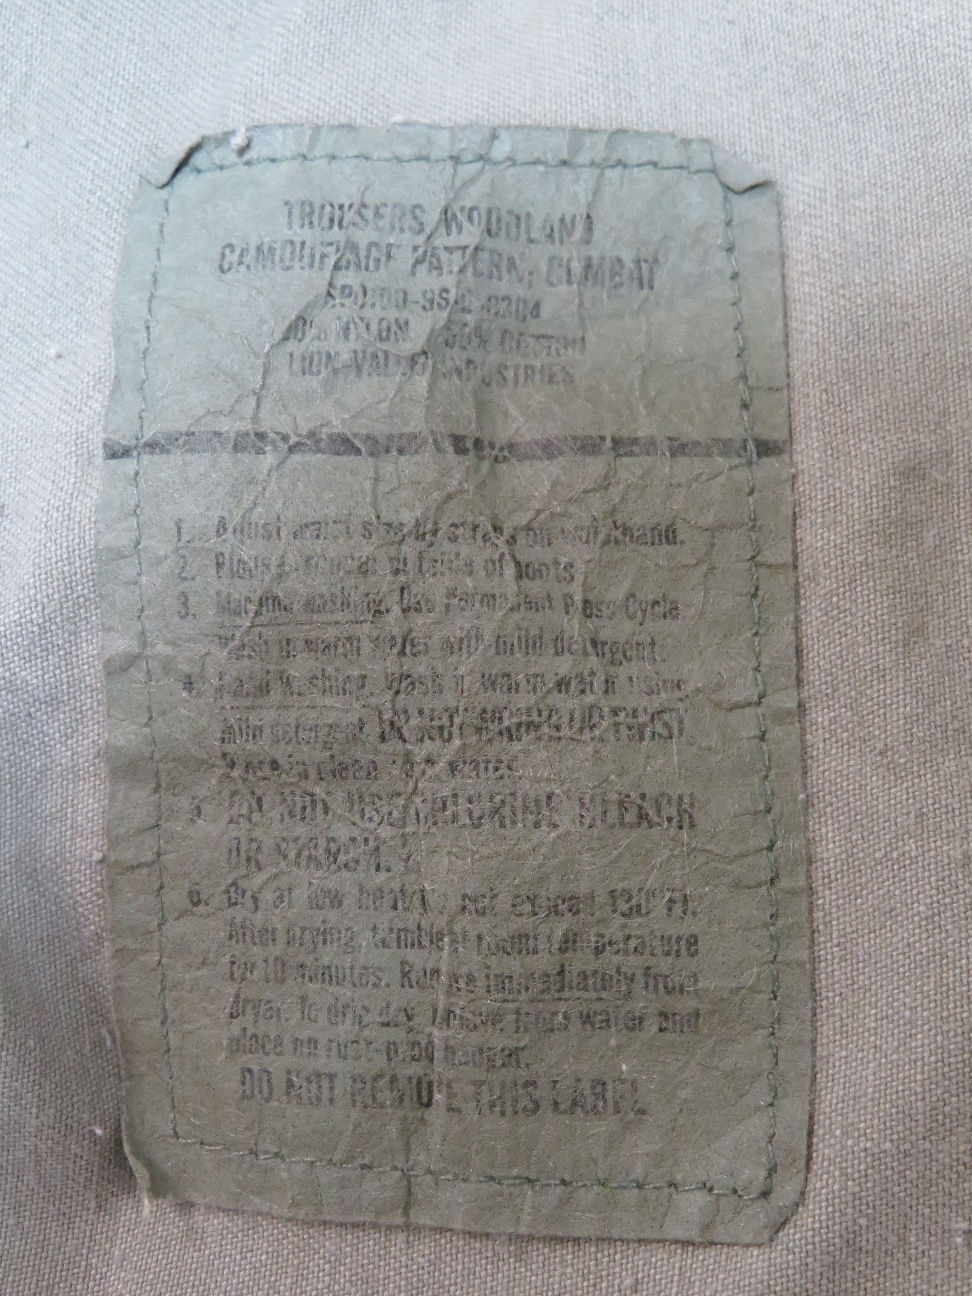 TROUSERS, WOODLAND
CAMOUFLAGE PATTERN, COMBAT
50% NYLON 50% COTTON
INDUSTRIES
1. Adjust waist size by straps on waistband.
2. Blouse trouser outside of boots
3. Machine washing. Use Permanent Press Cycle.
Wash in warm water with mild detergent.
4. Hand washing. Wash in warm water using
mild detergent. DO NOT WRING OR TWIST.
Rinse in clean water.
5. DO NOT USE CHLORINE BLEACH
OR STARCH.
6. Dry at low heat(Do not exceed 130°F).
After drying, tumble at room temperature
for 10 minutes. Remove immediately from
dryer. To drip dry, remove from water and
place on rust-proof hanger.
DO NOT REMOVE THIS LABEL